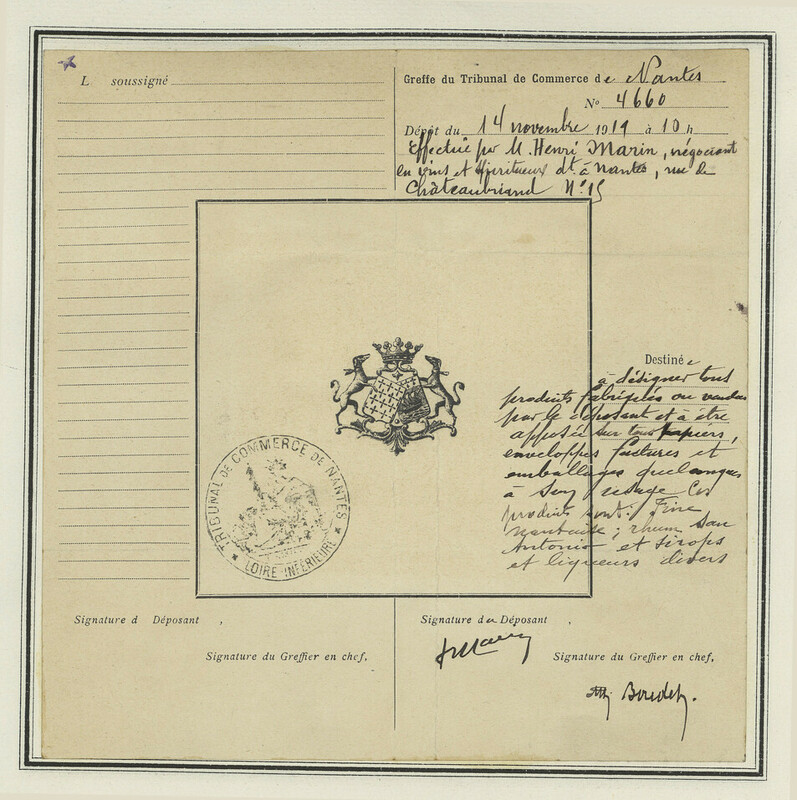 L soussigné
Greffe du Tribunal de Commerce de Nantes
No 4660
Dépôt du 14 novembre 1919 à 10 h
Effectué par M. Henri Marin, négociant
en vins et spiritueux dt à Nantes, rue de
Châteaubriand No 15
Destiné e
à désigner tous
produits fabriqués ou vendus
par le déposant et à être
apposée sur tous papiers,
enveloppes factures et
emballages quelconques
à son usage Ces
produits sont: Fine
nantaise; rhum San
Antonio et sirops
et liqueurs divers
TRIBUNAL DE COMMERCE DE NANTES
* LOIRE INFÉRIEURE *
Signature d Déposant ,
Signature du Greffier en chef,
Signature du Déposant ,
Signature du Greffier en chef,